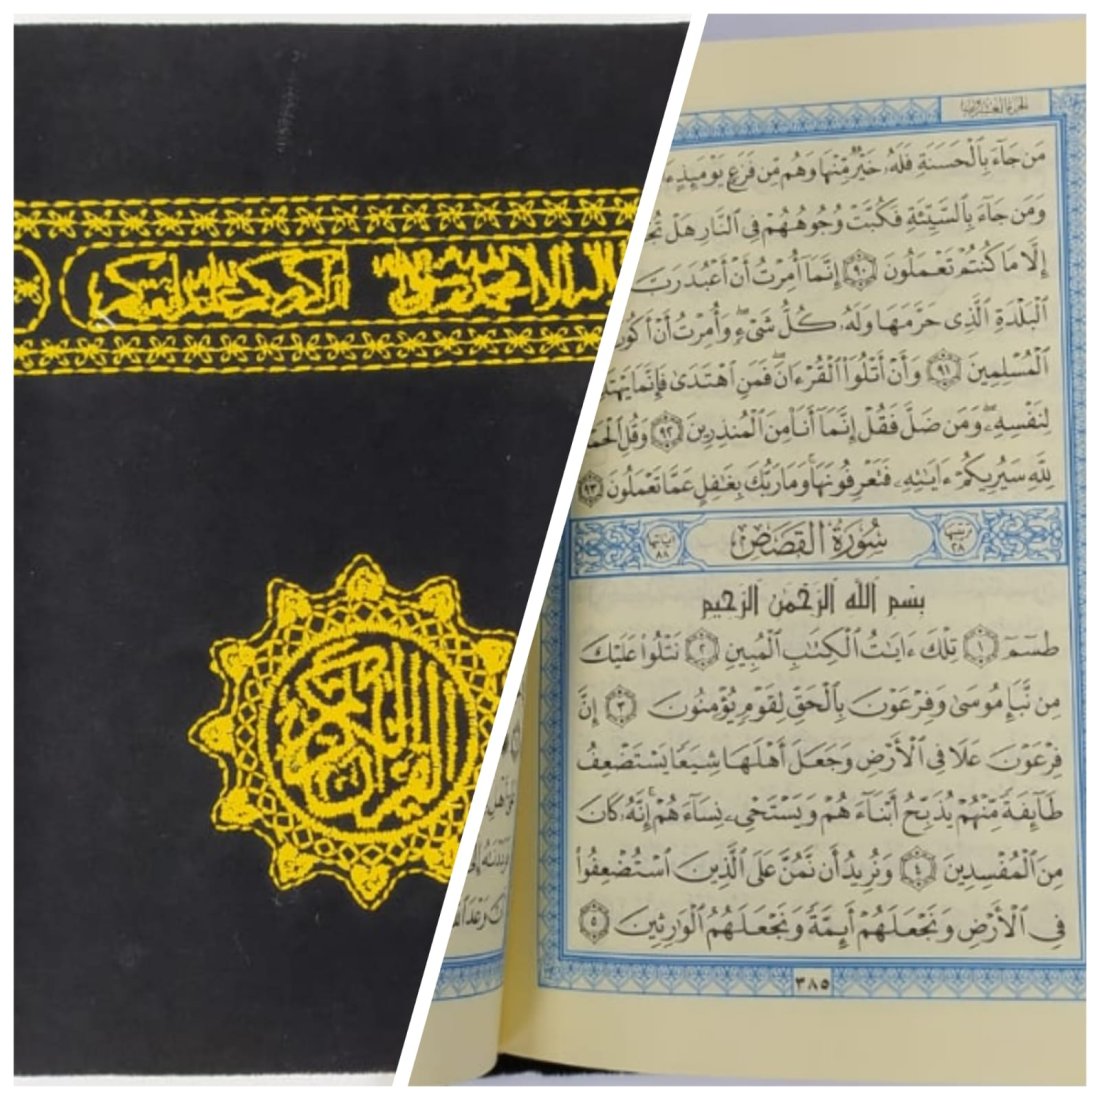 القرآن الكريم
الجزء العشرون
مَن جَآءَ بِٱلْحَسَنَةِ فَلَهُۥ خَيْرٌ مِّنْهَا وَهُم مِّن فَزَعٍ يَوْمَئِذٍ
وَمَن جَآءَ بِٱلسَّيِّئَةِ فَكُبَّتْ وُجُوهُهُمْ فِى ٱلنَّارِ هَلْ
إِلَّا مَا كُنتُمْ تَعْمَلُونَ ٩٠ إِنَّمَآ أُمِرْتُ أَنْ أَعْبُدَ رَبَّ
ٱلْبَلْدَةِ ٱلَّذِى حَرَّمَهَا وَلَهُۥ كُلُّ شَىْءٍ وَأُمِرْتُ أَنْ أَكُونَ
ٱلْمُسْلِمِينَ ٩١ وَأَنْ أَتْلُوَا۟ ٱلْقُرْءَانَ فَمَنِ ٱهْتَدَىٰ فَإِنَّمَا
لِنَفْسِهِۦ وَمَن ضَلَّ فَقُلْ إِنَّمَآ أَنَا۠ مِنَ ٱلْمُنذِرِينَ ٩٢ وَقُلِ
لِلَّهِ سَيُرِيكُمْ ءَايَٰتِهِۦ فَتَعْرِفُونَهَا وَمَا رَبُّكَ بِغَٰفِلٍ عَمَّا تَعْمَلُونَ ٩٣
ترتيبها ٢٨ سُورَةُ ٱلْقَصَصِ آياتها ٨٨
بسم ٱلله ٱلرحمن ٱلرحيم
طسٓمٓ ١ تِلْكَ ءَايَٰتُ ٱلْكِتَٰبِ ٱلْمُبِينِ ٢ نَتْلُوا۟ عَلَيْكَ
مِن نَّبَإِ مُوسَىٰ وَفِرْعَوْنَ بِٱلْحَقِّ لِقَوْمٍ يُؤْمِنُونَ ٣ إِنَّ
فِرْعَوْنَ عَلَا فِى ٱلْأَرْضِ وَجَعَلَ أَهْلَهَا شِيَعًا يَسْتَضْعِفُ
طَآئِفَةً مِّنْهُمْ يُذَبِّحُ أَبْنَآءَهُمْ وَيَسْتَحْىِۦ نِسَآءَهُمْ إِنَّهُۥ كَانَ
مِنَ ٱلْمُفْسِدِينَ ٤ وَنُرِيدُ أَن نَّمُنَّ عَلَى ٱلَّذِينَ ٱسْتُضْعِفُوا۟
فِى ٱلْأَرْضِ وَنَجْعَلَهُمْ أَئِمَّةً وَنَجْعَلَهُمُ ٱلْوَٰرِثِينَ ٥
٣٨٥